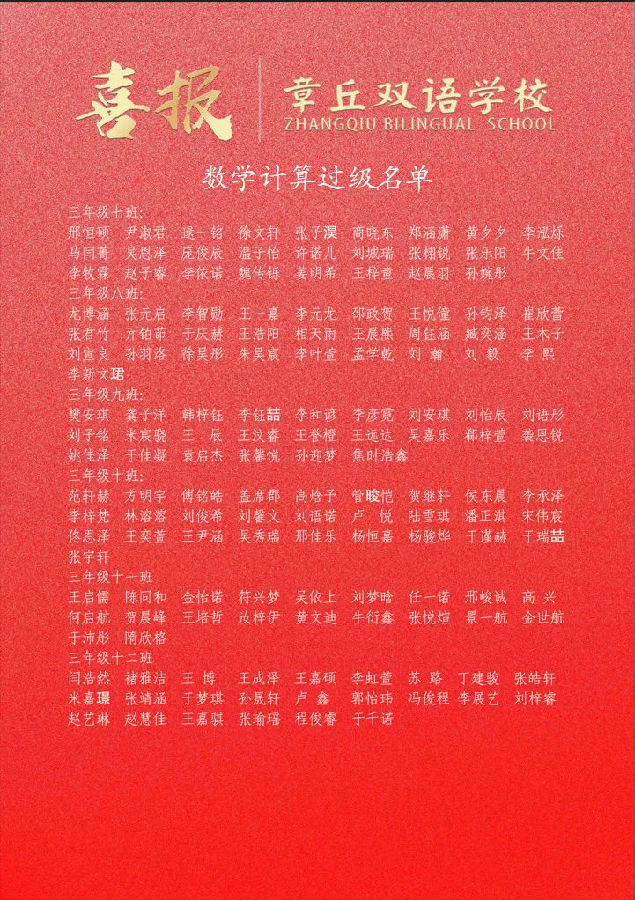 喜报
章丘双语学校
ZHANGQIU BILINGUAL SCHOOL
数学计算过级名单
三年级十班:
邢恒硕 尹淑君 逯一铭 徐文轩 张子淏 蔺晓东 郑涵潇 黄夕夕 李泓烁
马闫菁 吴恩泽 庞俊辰 温子怡 许诺儿 刘城瑞 张栩锐 张乐阳 牛文佳
李牧霖 赵子睿 华依诺 魏传铄 姜明希 王梓童 赵晨羽 孙婉彤
三年级八班:
尤博涵 张元启 李智勋 王一嘉 李元龙 邵政贺 王悦僮 孙钧泽 崔欣蕾
张君竹 亓铂茹 于庆赫 王浩阳 相天雨 王晨熙 周钰涵 臧奕涵 王木子
刘宣良 孙羽洛 徐昊彤 朱昊宸 李叶萱 孟学乾 刘 瀚 刘 毅 李 熙
李新文珺
三年级九班:
樊安琪 龚子洋 韩梓钰 李钰喆 李和谚 李彦霓 刘安琪 刘怡辰 刘语彤
刘子铭 米宸骁 王 辰 王汶睿 王誉橙 王远达 吴嘉乐 郗梓萱 袭恩锐
姚佳泽 于佳凝 袁启杰 张馨悦 孙迎梦 焦时浩鑫
三年级十班:
范轩赫 方明宇 傅铭皓 盖席郡 高焓予 管晙恺 贺继轩 侯东晨 李承泽
李梓梵 林溶溶 刘俊希 刘馨文 刘语诺 卢 悦 陆雪琪 潘正淇 宋伟宸
佟恩泽 王奕萱 王尹涵 吴秀瑞 邢佳乐 杨恒嘉 杨骏烨 于瑾赫 于瑞喆
张宇轩
三年级十一班
王启儒 陈同和 金怡诺 符兴梦 吴依上 刘梦晗 任一诺 邢峻诚 高 兴
何启航 贺晨峰 王培哲 汝梓伊 黄文迪 牛衍鑫 张悦煊 景一航 金世航
于沛彤 隋欣格
三年级十二班
闫浩然 褚雅洁 王 博 王成泽 王嘉硕 李虹萱 苏 路 丁建骏 张皓轩
米嘉璟 张靖涵 于梦琪 孙晟轩 卢 鑫 郭怡玮 冯俊程 李展艺 刘梓睿
赵艺琳 赵慧佳 王嘉骐 张瑜瑶 程俊睿 于千诺